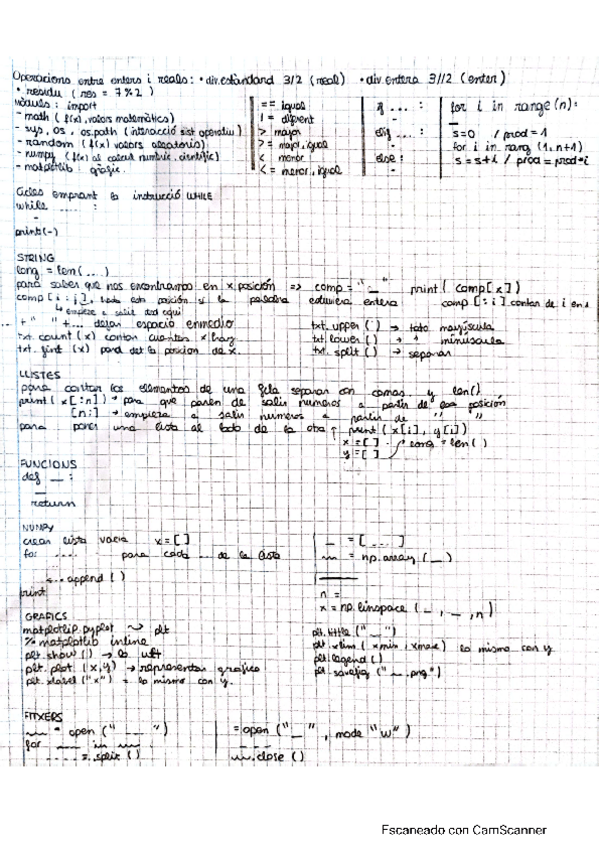 Operacions entre enters i reals: • div. estàndard 3/2 (real) • div. entera 3//2 (enter)
• residu (res = 7%2)
Mòduls: import
- math (f(x), valors matemàtics)
- sys, os, os.path (interacció sist operatiu)
- random (f(x) valors aleatoris)
- numpy (f(x) al càlcul numèric, científic)
- matplotlib: gràfic.
== igual
!= diferent
> major
>= major, igual
< menor
<= menor, igual
if ... :
-
elif ... :
-
else:
-
for i in range(n):
—
s=0 / prod = 1
for i in rang (1, n+1)
s = s+i / prod = prod*i
Cicles emprant la instrucció WHILE
while ..... :
-
print(-)
STRING
long = len(...)
para saber que nos encontramos en x posición => comp = "_" print(comp[x])
comp [i:j], todo esta posición si la palabra estuviera entera comp [:i] contar de i en s
↳ empieza a salir del aquí
+ " " +... dejar espacio enmedio
txt.count (x) contar cuantas x hay
txt.find (x) para det la posición de x.
txt.upper () → toto mayúscula
txt lower () → " minúscula
txt.split () → separar
LLISTES
para contar los elementos de una fila separar con comas y len()
print (x[:n]) → para que paren de salir numeros a partir de esa posición
[n:] → empieza a salir numeros a partir de " "
para poner una lista al lado de la otra ↑ print (x[i], y[i])
x = [] · long = len()
y = []
FUNCIONS
def __ :
—
return
NUMPY
crear lista vacia x = []
for .... para cada ... de la lista
<...append ()
print
_ = [....]
~ = np.array (_)
n =
x = np.linspace (_, _, n)
GRAFICS
matplotlip.pyplot ~> plt
% matplotlib inline
plt.show() → lo ult
plt.plot (x,y) → representar grafico
plt.xlabel ("x") = lo mismo con y.
plt.tittle ("_")
plt.xlim (xmin, xmax) lo mismo con y.
plt.legend ()
plt.savefig ("__.png")
FITXERS
~ = open ("___")
for __ in ~ :
.... =.split ()
= open ("_", mode "w")
~.close ()
Escaneado con CamScanner